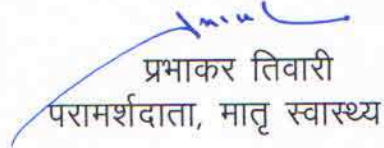 प्रभाकर तिवारी
परामर्शदाता, मातृ स्वास्थ्य